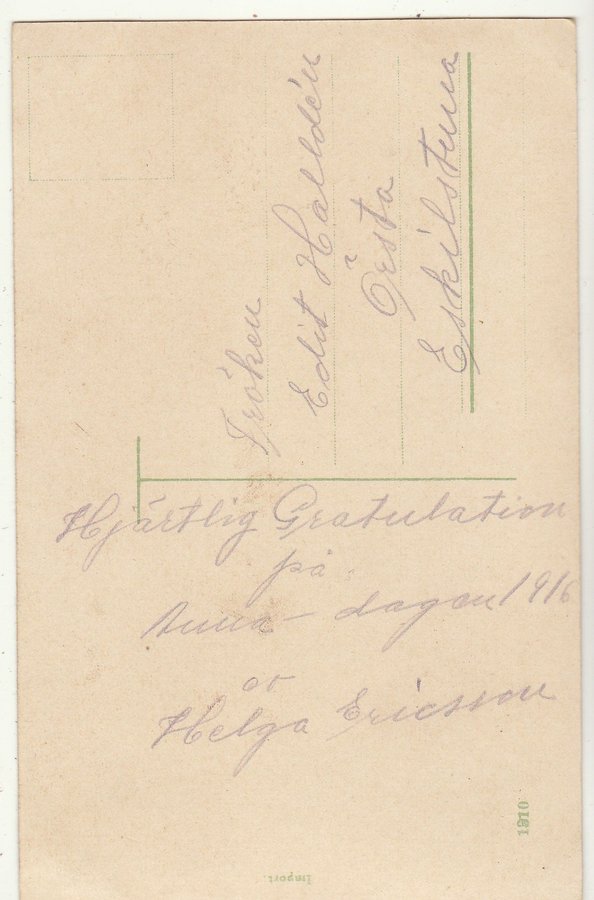 Fröken
Edit Halldén
Örsta
Eskilstuna
Hjärtlig Gratulation
på
Anna-dagen 1916
av
Helga Ericsson
1310
Import